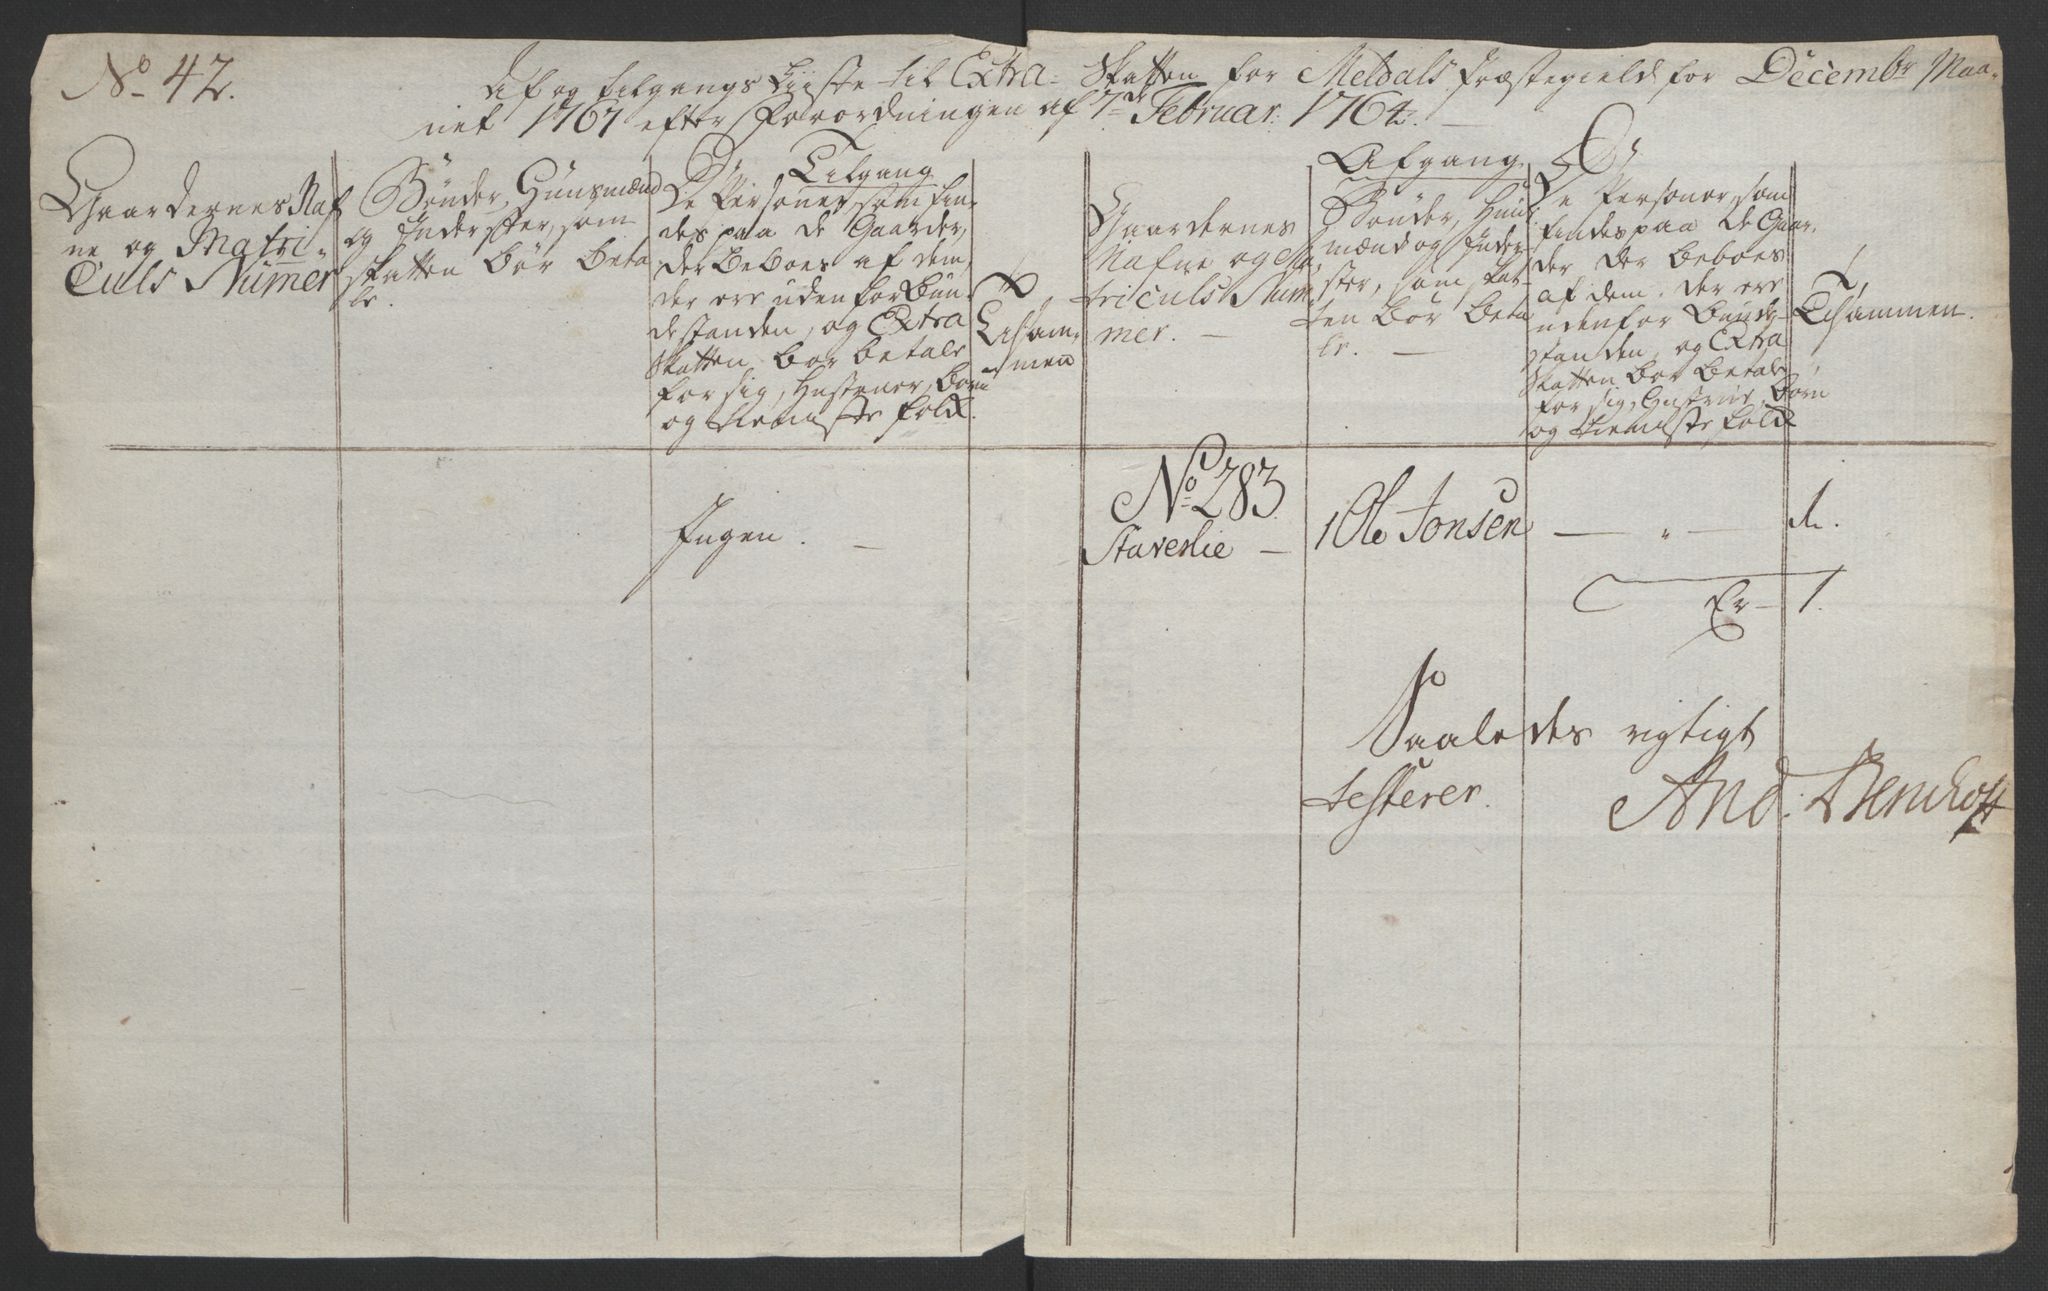 No 42.
Af og tilgangs Liiste til Extra-Skatten for Meldals Præstegield for Decembr Maa-
net 1767 efter Forordningen af 7de Februar: 1764. —
Gaardernes Naf
ne og Matri-
Culs Numer
Bønder, Huusmænd
og Inderster, som
skatten bør beta
le.
Tilgang
De Personer, som fin-
des paa de Gaarder,
der beboes af dem,
der ere udenfor Bon-
destanden, og Extra
Skatten bør betale
for sig, Hustruer, Børn
og tieniste folk.
Tilsam-
men
Gaardernes
Nafne og Ma
triculs Num
mer. —
Afgang
Bønder, Huus
mænd og Inder-
ster, som skat-
ten bør beta
le. —
De Personer, som
findes paa de Gaar-
der der beboes
af dem, der ere
udenfor Bonde-
standen, og Extra
Skatten bør betale
for sig, Hustrue, Børn
og tieniste folk
Tilsammen.
Ingen. —
No 283
Staverlie —
1 Ole Jonsen — " — 1.
Er — 1.
Saaledes rigtigt
testerer.
And. Bernhoft